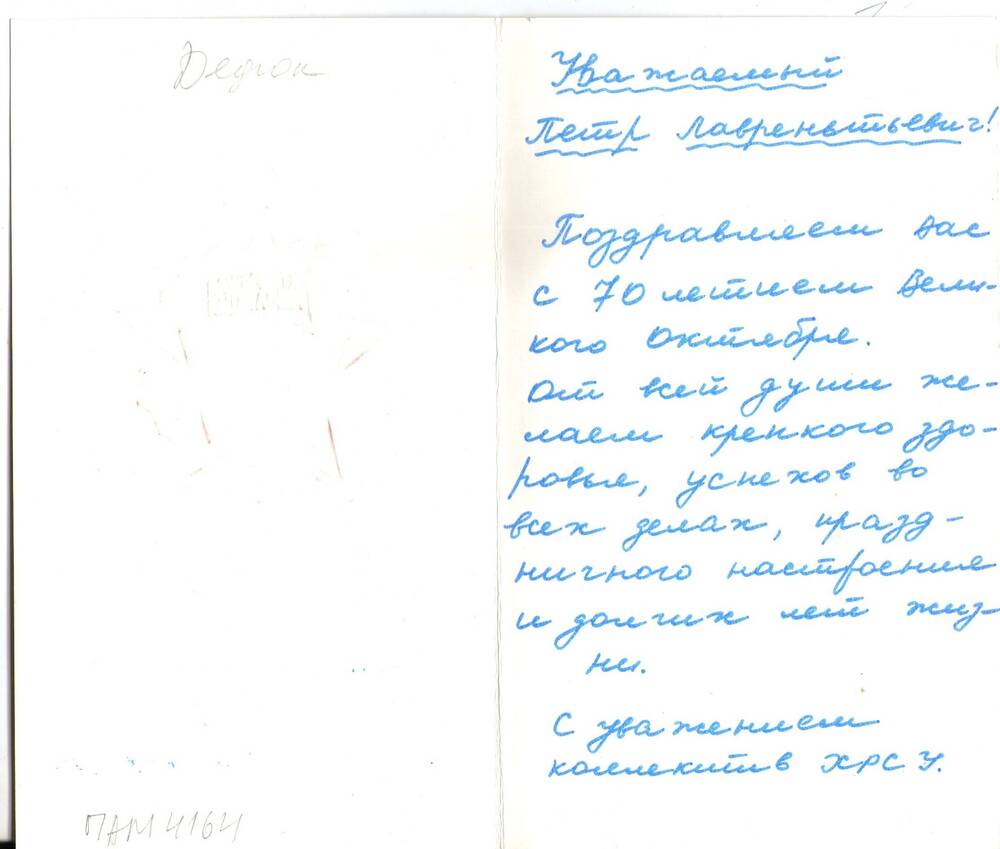 Уважаемый
Петр Лаврентьевич!
Поздравляем вас
с 70 летием Вели-
кого Октября.
От всей души же-
лаем крепкого здо-
ровья, успехов во
всех делах, празд-
ничного настроения
и долгих лет жиз-
ни.
С уважением
коллектив ХРСУ.
ПАМ 4164